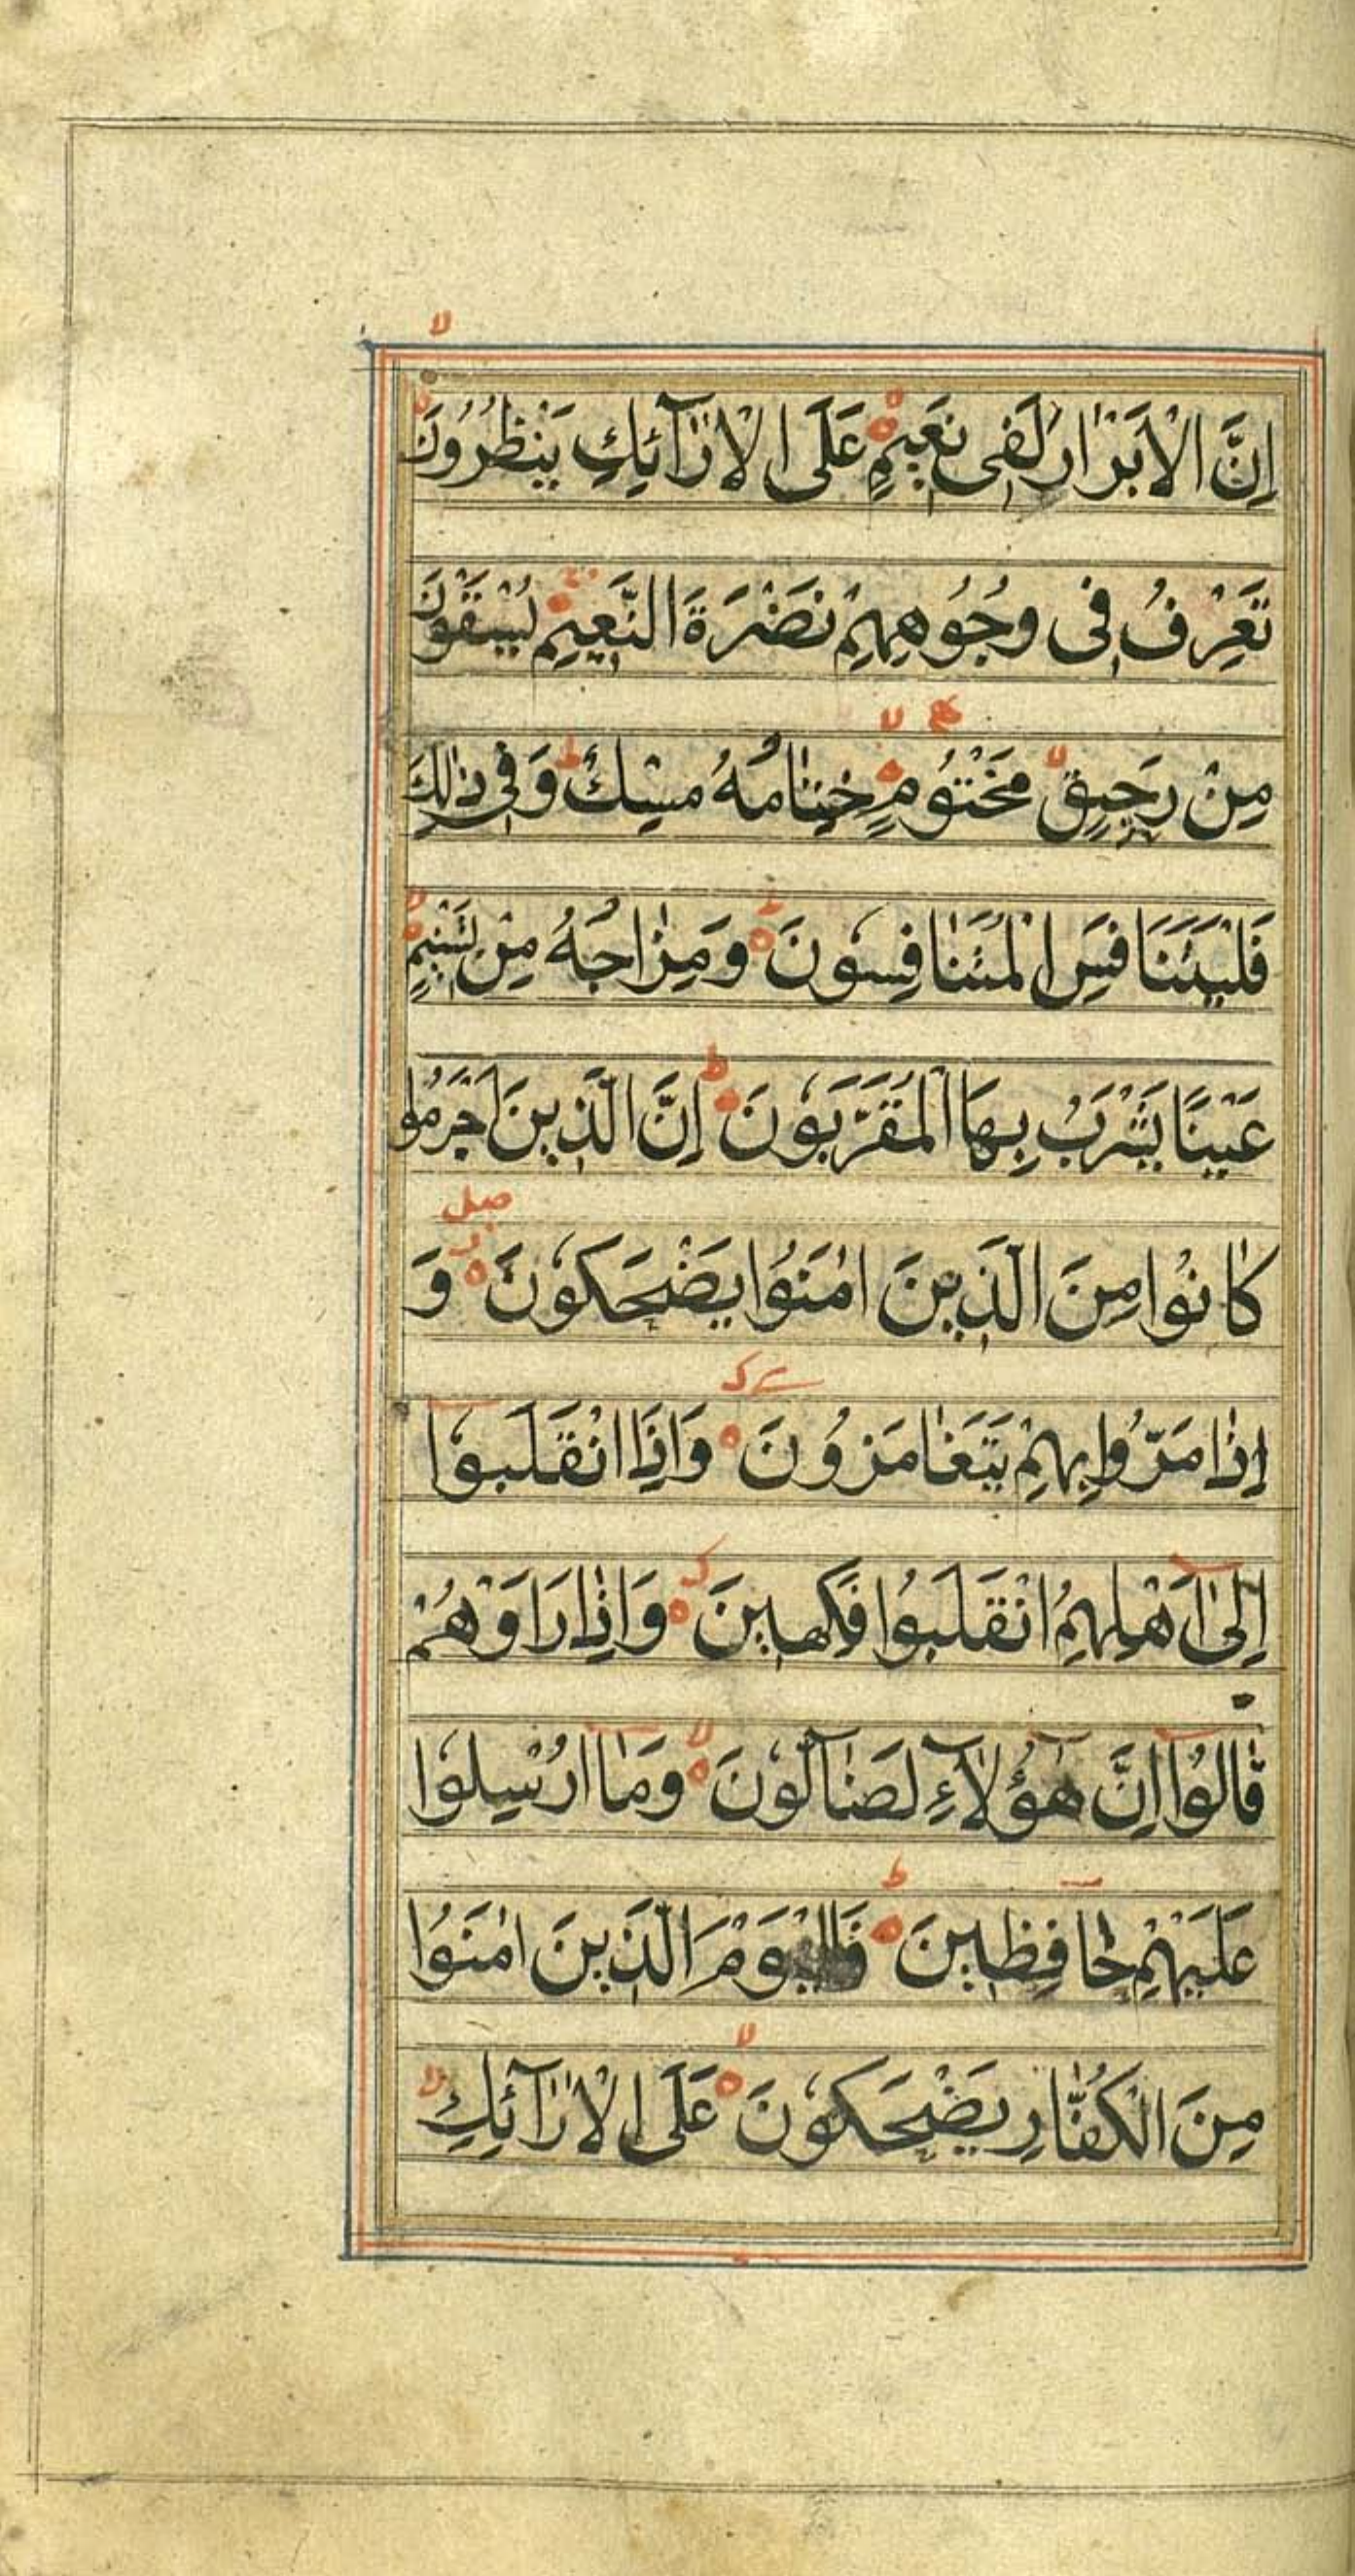 اِنَّ الْاَبْرَارَ لَفِی نَعِیْمٍ عَلَی الْاَرَآئِكِ یَنْظُرُوْنَ
تَعْرِفُ فِی وُجُوْهِهِمْ نَضْرَةَ النَّعِیْمِ یُسْقَوْنَ
مِنْ رَحِیْقٍ مَخْتُوْمٍ خِتَامُهُ مِسْكٌ وَفِی ذٰلِكَ
فَلْیَتَنَافَسِ الْمُتَنَافِسُوْنَ وَمِزَاجُهُ مِنْ تَسْنِیْمٍ
عَیْنًا یَشْرَبُ بِهَا الْمُقَرَّبُوْنَ اِنَّ الَّذِیْنَ اَجْرَمُوا
كَانُوْا مِنَ الَّذِیْنَ اٰمَنُوْا یَضْحَكُوْنَ وَ
اِذَا مَرُّوْا بِهِمْ یَتَغَامَزُوْنَ وَاِذَا انْقَلَبُوْا
اِلٰی اَهْلِهِمُ انْقَلَبُوْا فَكِهِیْنَ وَاِذَا رَاَوْهُمْ
قَالُوْا اِنَّ هٰؤُلَآءِ لَضَآلُّوْنَ وَمَا اُرْسِلُوْا
عَلَیْهِمْ حَافِظِیْنَ فَالْیَوْمَ الَّذِیْنَ اٰمَنُوْا
مِنَ الْكُفَّارِ یَضْحَكُوْنَ عَلَی الْاَرَآئِكِ